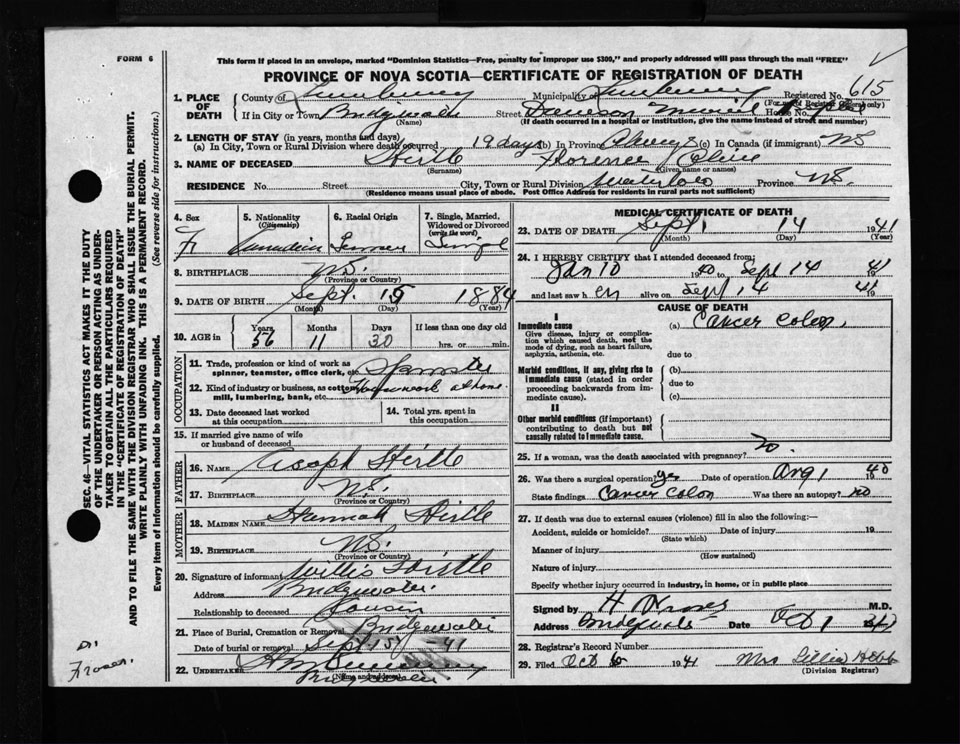 FORM 6
This form if placed in an envelope, marked "Dominion Statistics—Free, penalty for improper use $300," and properly addressed will pass through the mail "FREE"
PROVINCE OF NOVA SCOTIA—CERTIFICATE OF REGISTRATION OF DEATH
Registered No. 615
(For use of Registrar General only)
1. PLACE OF DEATH
County of Lunenburg Municipality of Lunenburg
If in City or Town Bridgewater Street Dawson Memorial Hospital House No.
(Name) (If death occurred in a hospital or institution, give the name instead of street and number)
2. LENGTH OF STAY (in years, months and days)
(a) In City, Town or Rural Division where death occurred 19 days (b) In Province Always (c) In Canada (if immigrant) NS
3. NAME OF DECEASED Hirtle Florence Olive
(Surname) (Given name or names)
RESIDENCE No. Street City, Town or Rural Division Waterloo Province N.S.
(Residence means usual place of abode. Post Office Address for residents in rural parts not sufficient)
4. Sex F
5. Nationality (Citizenship) Canadian
6. Racial Origin German
7. Single, Married, Widowed or Divorced (write the word) Single
8. BIRTHPLACE N.S.
(Province or Country)
9. DATE OF BIRTH Sept. 15 1884
(Month) (Day) (Year)
10. AGE in Years 56 Months 11 Days 30 If less than one day old hrs. or min.
OCCUPATION
11. Trade, profession or kind of work as spinner, teamster, office clerk, etc. Spinster
12. Kind of industry or business, as cotton mill, lumbering, bank, etc. Housework at home
13. Date deceased last worked at this occupation
14. Total yrs. spent in this occupation
15. If married give name of wife or husband of deceased
FATHER
16. NAME Asaph Hirtle
17. BIRTHPLACE N.S.
(Province or Country)
MOTHER
18. MAIDEN NAME Hannah Hirtle
19. BIRTHPLACE N.S.
(Province or Country)
20. Signature of informant Willis Hirtle
Address Bridgewater
Relationship to deceased Cousin
21. Place of Burial, Cremation or Removal Bridgewater
Date of burial or removal Sept 15 41
22. UNDERTAKER
Bridgewater.
(Name and address)
MEDICAL CERTIFICATE OF DEATH
23. DATE OF DEATH Sept. 14 1941
(Month) (Day) (Year)
24. I HEREBY CERTIFY that I attended deceased from;
Jan 10 1940 to Sept 14 1941
and last saw her alive on Sept 14 1941
CAUSE OF DEATH
I
Immediate cause
Give disease, injury or complication which caused death, not the mode of dying, such as heart failure, asphyxia, asthenia, etc.
(a) Cancer Colon
due to
Morbid conditions, if any, giving rise to immediate cause (stated in order proceeding backwards from immediate cause).
(b)
due to
(c)
II
Other morbid conditions (if important) contributing to death but not causally related to immediate cause.
25. If a woman, was the death associated with pregnancy? no.
26. Was there a surgical operation? yes Date of operation Aug 1 1940
State findings Cancer Colon Was there an autopsy? no
27. If death was due to external causes (violence) fill in also the following:—
Accident, suicide or homicide? Date of injury 19
(State which)
Manner of injury
(How sustained)
Nature of injury
Specify whether injury occurred in industry, in home, or in public place
Signed by M.D.
Address Bridgewater Date Oct 1
28. Registrar's Record Number
29. Filed Oct 6 1941 Mrs Lillia Hebb
(Division Registrar)
SEC. 46—VITAL STATISTICS ACT MAKES IT THE DUTY
OF THE UNDERTAKER OR PERSON ACTING AS UNDER-
TAKER TO OBTAIN ALL THE PARTICULARS REQUIRED
IN THE "CERTIFICATE OF REGISTRATION OF DEATH"
AND TO FILE THE SAME WITH THE DIVISION REGISTRAR WHO SHALL ISSUE THE BURIAL PERMIT.
WRITE PLAINLY WITH UNFADING INK. THIS IS A PERMANENT RECORD.
Every item of information should be carefully supplied. (See reverse side for instructions.)
Dr.